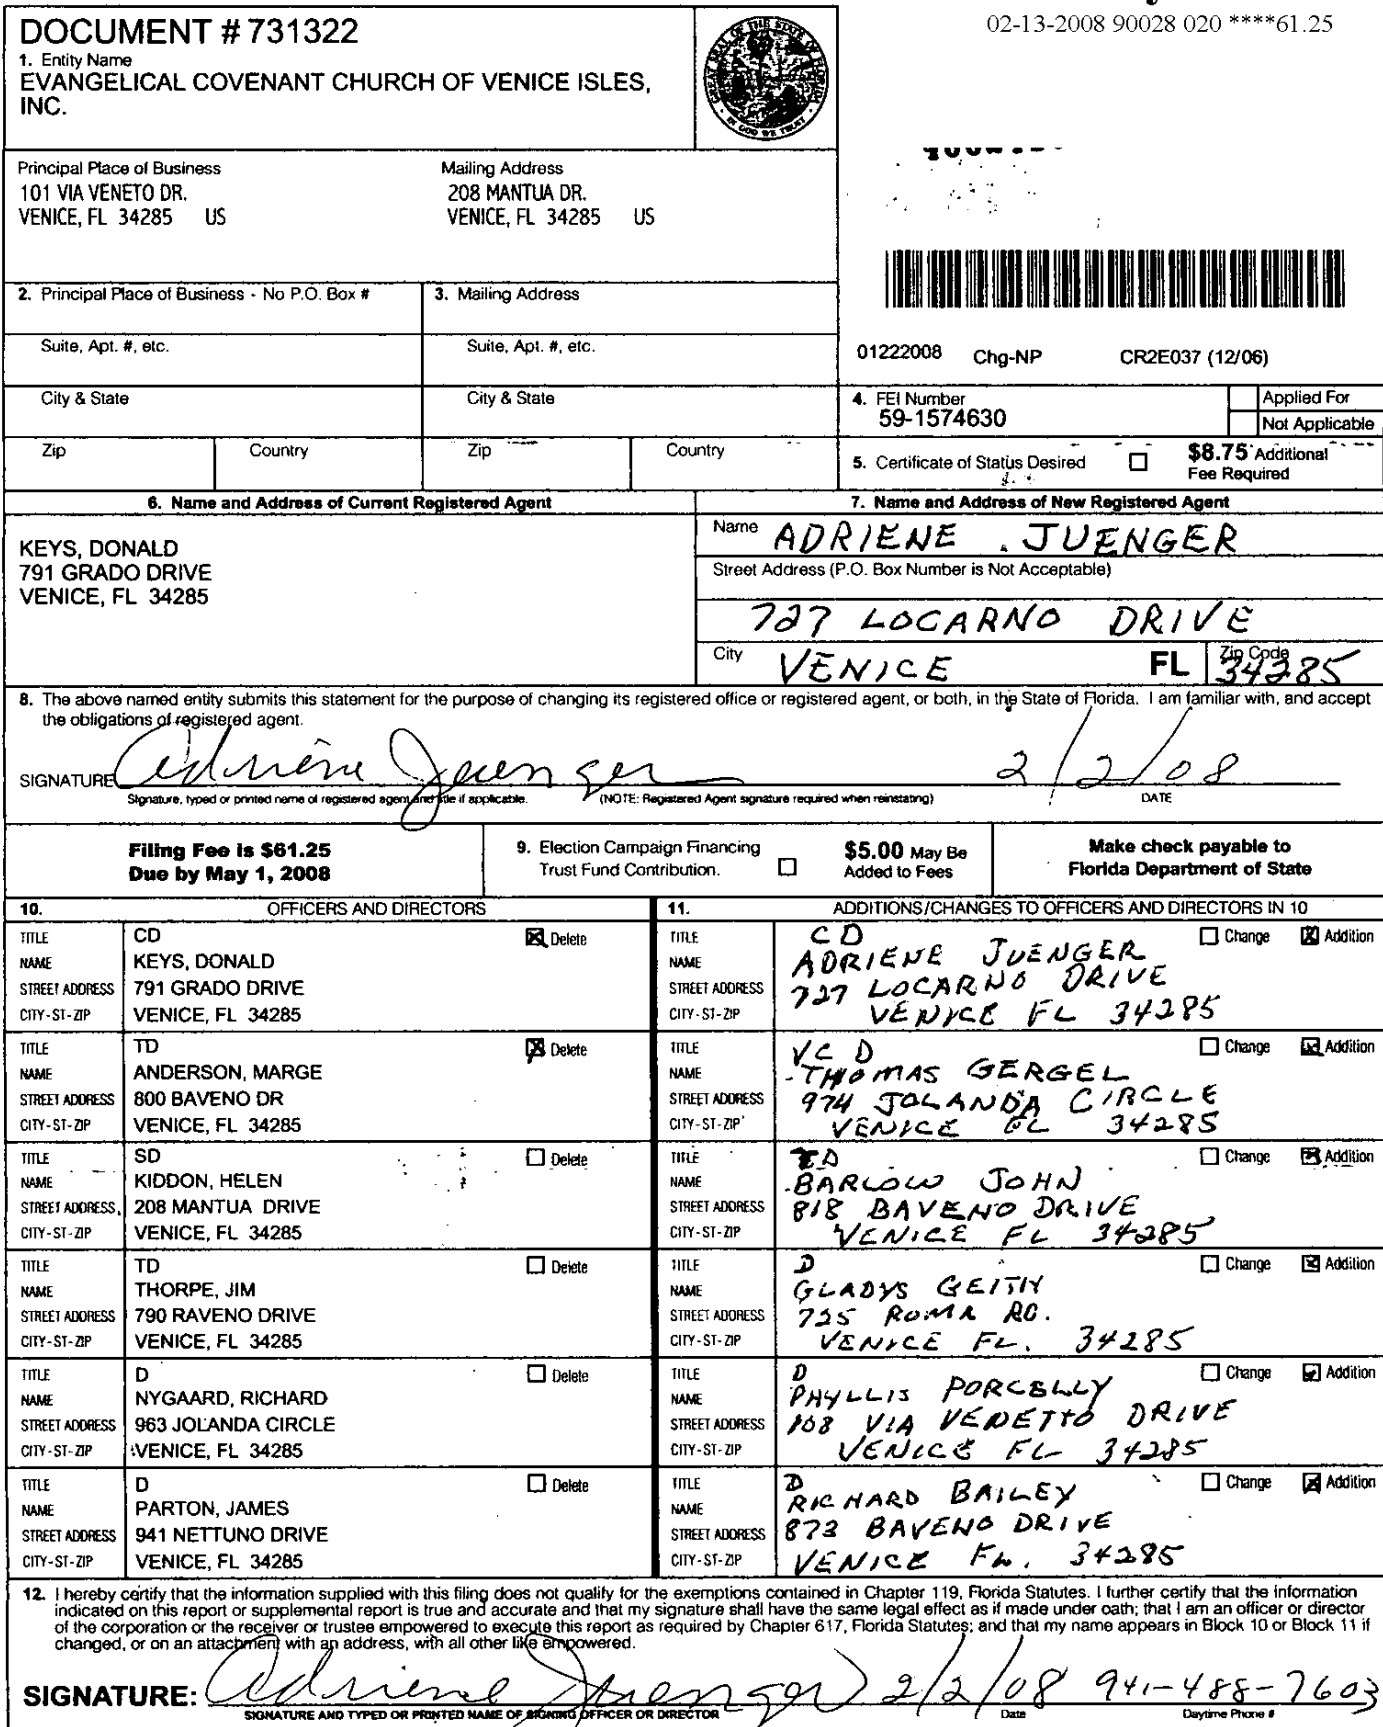 02-13-2008 90028 020 ****61.25
DOCUMENT # 731322
1. Entity Name
EVANGELICAL COVENANT CHURCH OF VENICE ISLES,
INC.
GREAT SEAL OF THE STATE OF FLORIDA
IN GOD WE TRUST
Principal Place of Business
101 VIA VENETO DR.
VENICE, FL 34285 US
Mailing Address
208 MANTUA DR.
VENICE, FL 34285 US
2. Principal Place of Business - No P.O. Box #
3. Mailing Address
Suite, Apt. #, etc.
Suite, Apt. #, etc.
01222008 Chg-NP CR2E037 (12/06)
City & State
City & State
4. FEI Number
59-1574630
Applied For
Not Applicable
Zip Country Zip Country
5. Certificate of Status Desired
$8.75 Additional
Fee Required
6. Name and Address of Current Registered Agent
KEYS, DONALD
791 GRADO DRIVE
VENICE, FL 34285
7. Name and Address of New Registered Agent
Name ADRIENE JUENGER
Street Address (P.O. Box Number is Not Acceptable)
727 LOCARNO DRIVE
City VENICE FL Zip Code 34285
8. The above named entity submits this statement for the purpose of changing its registered office or registered agent, or both, in the State of Florida. I am familiar with, and accept
the obligations of registered agent.
SIGNATURE Adriene Juenger 2/2/08
Signature, typed or printed name of registered agent and title if applicable. (NOTE: Registered Agent signature required when reinstating) DATE
Filing Fee is $61.25
Due by May 1, 2008
9. Election Campaign Financing
Trust Fund Contribution.
$5.00 May Be
Added to Fees
Make check payable to
Florida Department of State
10. OFFICERS AND DIRECTORS
TITLE CD Delete
NAME KEYS, DONALD
STREET ADDRESS 791 GRADO DRIVE
CITY-ST-ZIP VENICE, FL 34285
TITLE TD Delete
NAME ANDERSON, MARGE
STREET ADDRESS 800 BAVENO DR
CITY-ST-ZIP VENICE, FL 34285
TITLE SD Delete
NAME KIDDON, HELEN
STREET ADDRESS 208 MANTUA DRIVE
CITY-ST-ZIP VENICE, FL 34285
TITLE TD Delete
NAME THORPE, JIM
STREET ADDRESS 790 RAVENO DRIVE
CITY-ST-ZIP VENICE, FL 34285
TITLE D Delete
NAME NYGAARD, RICHARD
STREET ADDRESS 963 JOLANDA CIRCLE
CITY-ST-ZIP VENICE, FL 34285
TITLE D Delete
NAME PARTON, JAMES
STREET ADDRESS 941 NETTUNO DRIVE
CITY-ST-ZIP VENICE, FL 34285
11. ADDITIONS/CHANGES TO OFFICERS AND DIRECTORS IN 10
TITLE CD Change Addition
NAME ADRIENE JUENGER
STREET ADDRESS 727 LOCARNO DRIVE
CITY-ST-ZIP VENICE FL 34285
TITLE VCD Change Addition
NAME THOMAS GERGEL
STREET ADDRESS 974 JOLANDA CIRCLE
CITY-ST-ZIP VENICE FL 34285
TITLE TD Change Addition
NAME BARLOW JOHN
STREET ADDRESS 818 BAVENO DRIVE
CITY-ST-ZIP VENICE FL 34285
TITLE D Change Addition
NAME GLADYS
STREET ADDRESS 725 ROMA RD.
CITY-ST-ZIP VENICE FL. 34285
TITLE D Change Addition
NAME PHYLLIS PORCELLY
STREET ADDRESS 108 VIA VENETTO DRIVE
CITY-ST-ZIP VENICE FL 34285
TITLE D Change Addition
NAME RICHARD BAILEY
STREET ADDRESS 873 BAVENO DRIVE
CITY-ST-ZIP VENICE FL. 34285
12. I hereby certify that the information supplied with this filing does not qualify for the exemptions contained in Chapter 119, Florida Statutes. I further certify that the information
indicated on this report or supplemental report is true and accurate and that my signature shall have the same legal effect as if made under oath; that I am an officer or director
of the corporation or the receiver or trustee empowered to execute this report as required by Chapter 617, Florida Statutes; and that my name appears in Block 10 or Block 11 if
changed, or on an attachment with an address, with all other like empowered.
SIGNATURE: Adriene Juenger 2/2/08 941-488-7603
SIGNATURE AND TYPED OR PRINTED NAME OF SIGNING OFFICER OR DIRECTOR Date Daytime Phone #